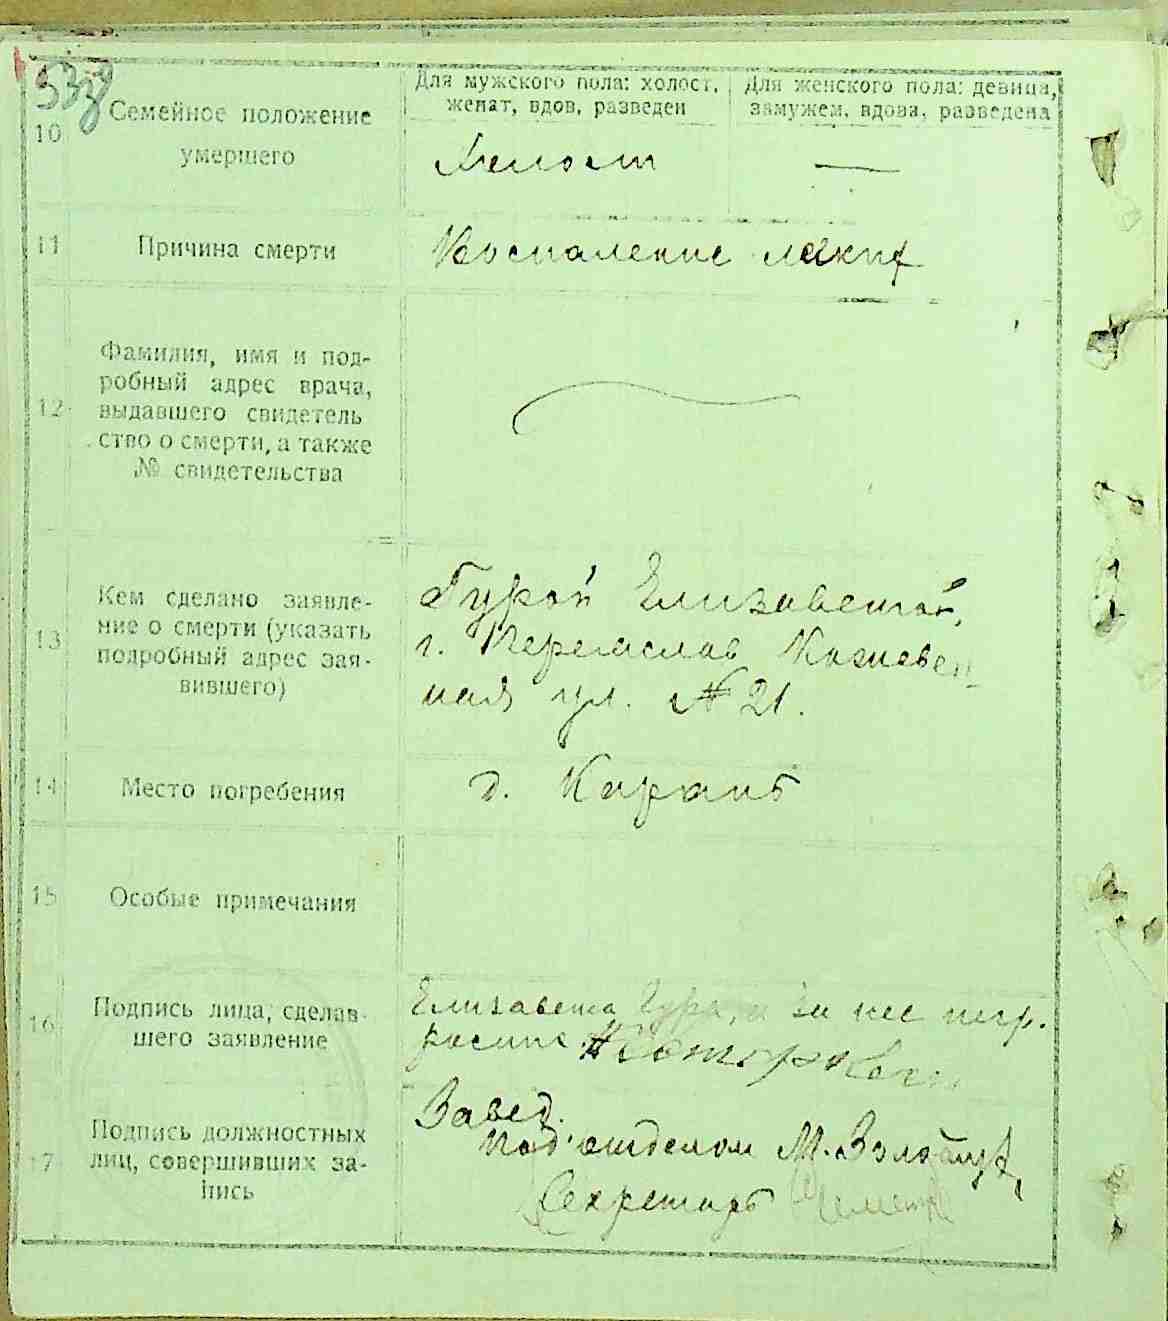 533
10
Семейное положение
умершего
Для мужского пола: холост,
женат, вдов, разведен
Для женского пола: девица,
замужем, вдова, разведена
Холост
—
11
Причина смерти
Воспаление лёких
12
Фамилия, имя и под-
робный адрес врача,
выдавшего свидетель
ство о смерти, а также
№ свидетельства
13
Кем сделано заявле-
ние о смерти (указать
подробный адрес зая-
вившего)
Гурой Елизаветой,
г. Переяслав
ная ул. № 21.
14
Место погребения
д. Карань
15
Особые примечания
16
Подпись лица, сделав-
шего заявление
Елизавета Гура, а за нее негр.
росписс.
17
Подпись должностных
лиц, совершивших за-
пись
Завед.
Подъотделом М.
Секретарь